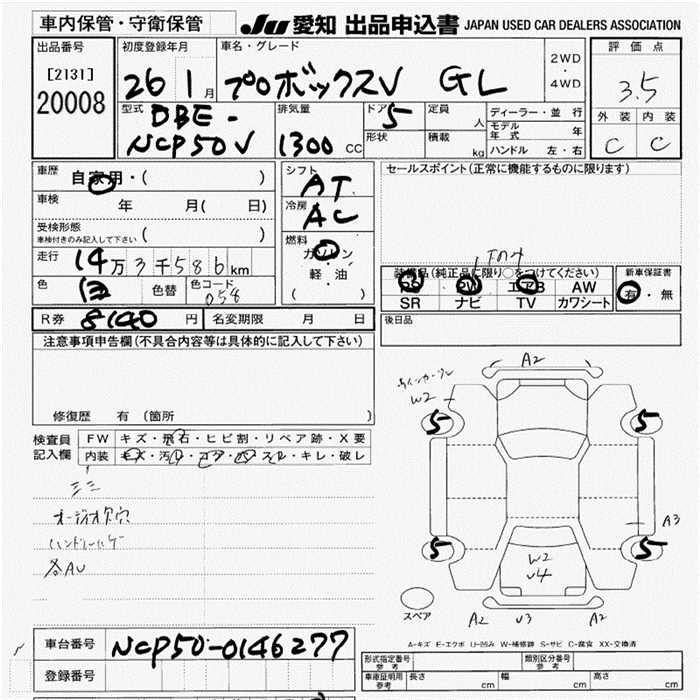 車内保管・守衛保管
JU 愛知 出品申込書 JAPAN USED CAR DEALERS ASSOCIATION
出品番号
[2131]
20008
初度登録年月
26 1 月
車名・グレード
プロボックスV GL
2WD
・
4WD
評価点
3.5
外装 内装
C C
型式
DBE-
NCP50V
排気量
1300 CC
ドア 5
形状
定員 人
積載 kg
ディーラー・並行
モデル年式 年
ハンドル 左・右
車歴
自家用・( )
車検 年 月( 日)
受検形態
車検付きのみ記入して下さい ( )
走行 14万3千586km
色 白 色替 色コード 058
シフト
AT
冷房
AC
燃料
ガソリン
軽・油
( )
セールスポイント(正常に機能するものに限ります)
装備品(純正品に限り○をつけてください)
PS PW エアB AW
SR ナビ TV カワシート
新車保証書
有・無
R券 8140 円 名変期限 月 日
後日品
注意事項申告欄(不具合内容等は具体的に記入して下さい)
修復歴 有 (箇所 )
検査員
記入欄
FW キズ・飛石・ヒビ割・リペア跡・X要
内装 キズ・汚れ・コゲ・穴・スレ・キレ・破レ
オーディオ欠穴
各AU
A2
W2
5 5
A3
5 5
W2
U4
スペア
A2 U3 A2
A-キズ E-エクボ U-凹み W-補修跡 S-サビ C-腐食 XX-交換済
車台番号 NCP50-0146277
登録番号
形式指定番号
参考
類別区分番号
参考
車庫証明用
参考
長さ cm 幅 cm 高さ cm